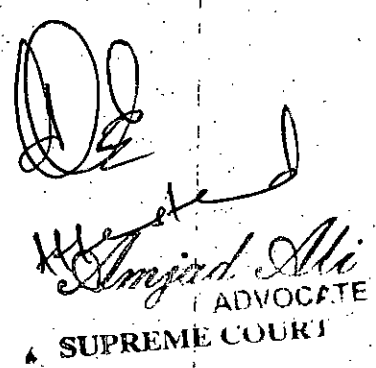 Attested
Amjad Ali
ADVOCATE
SUPREME COURT